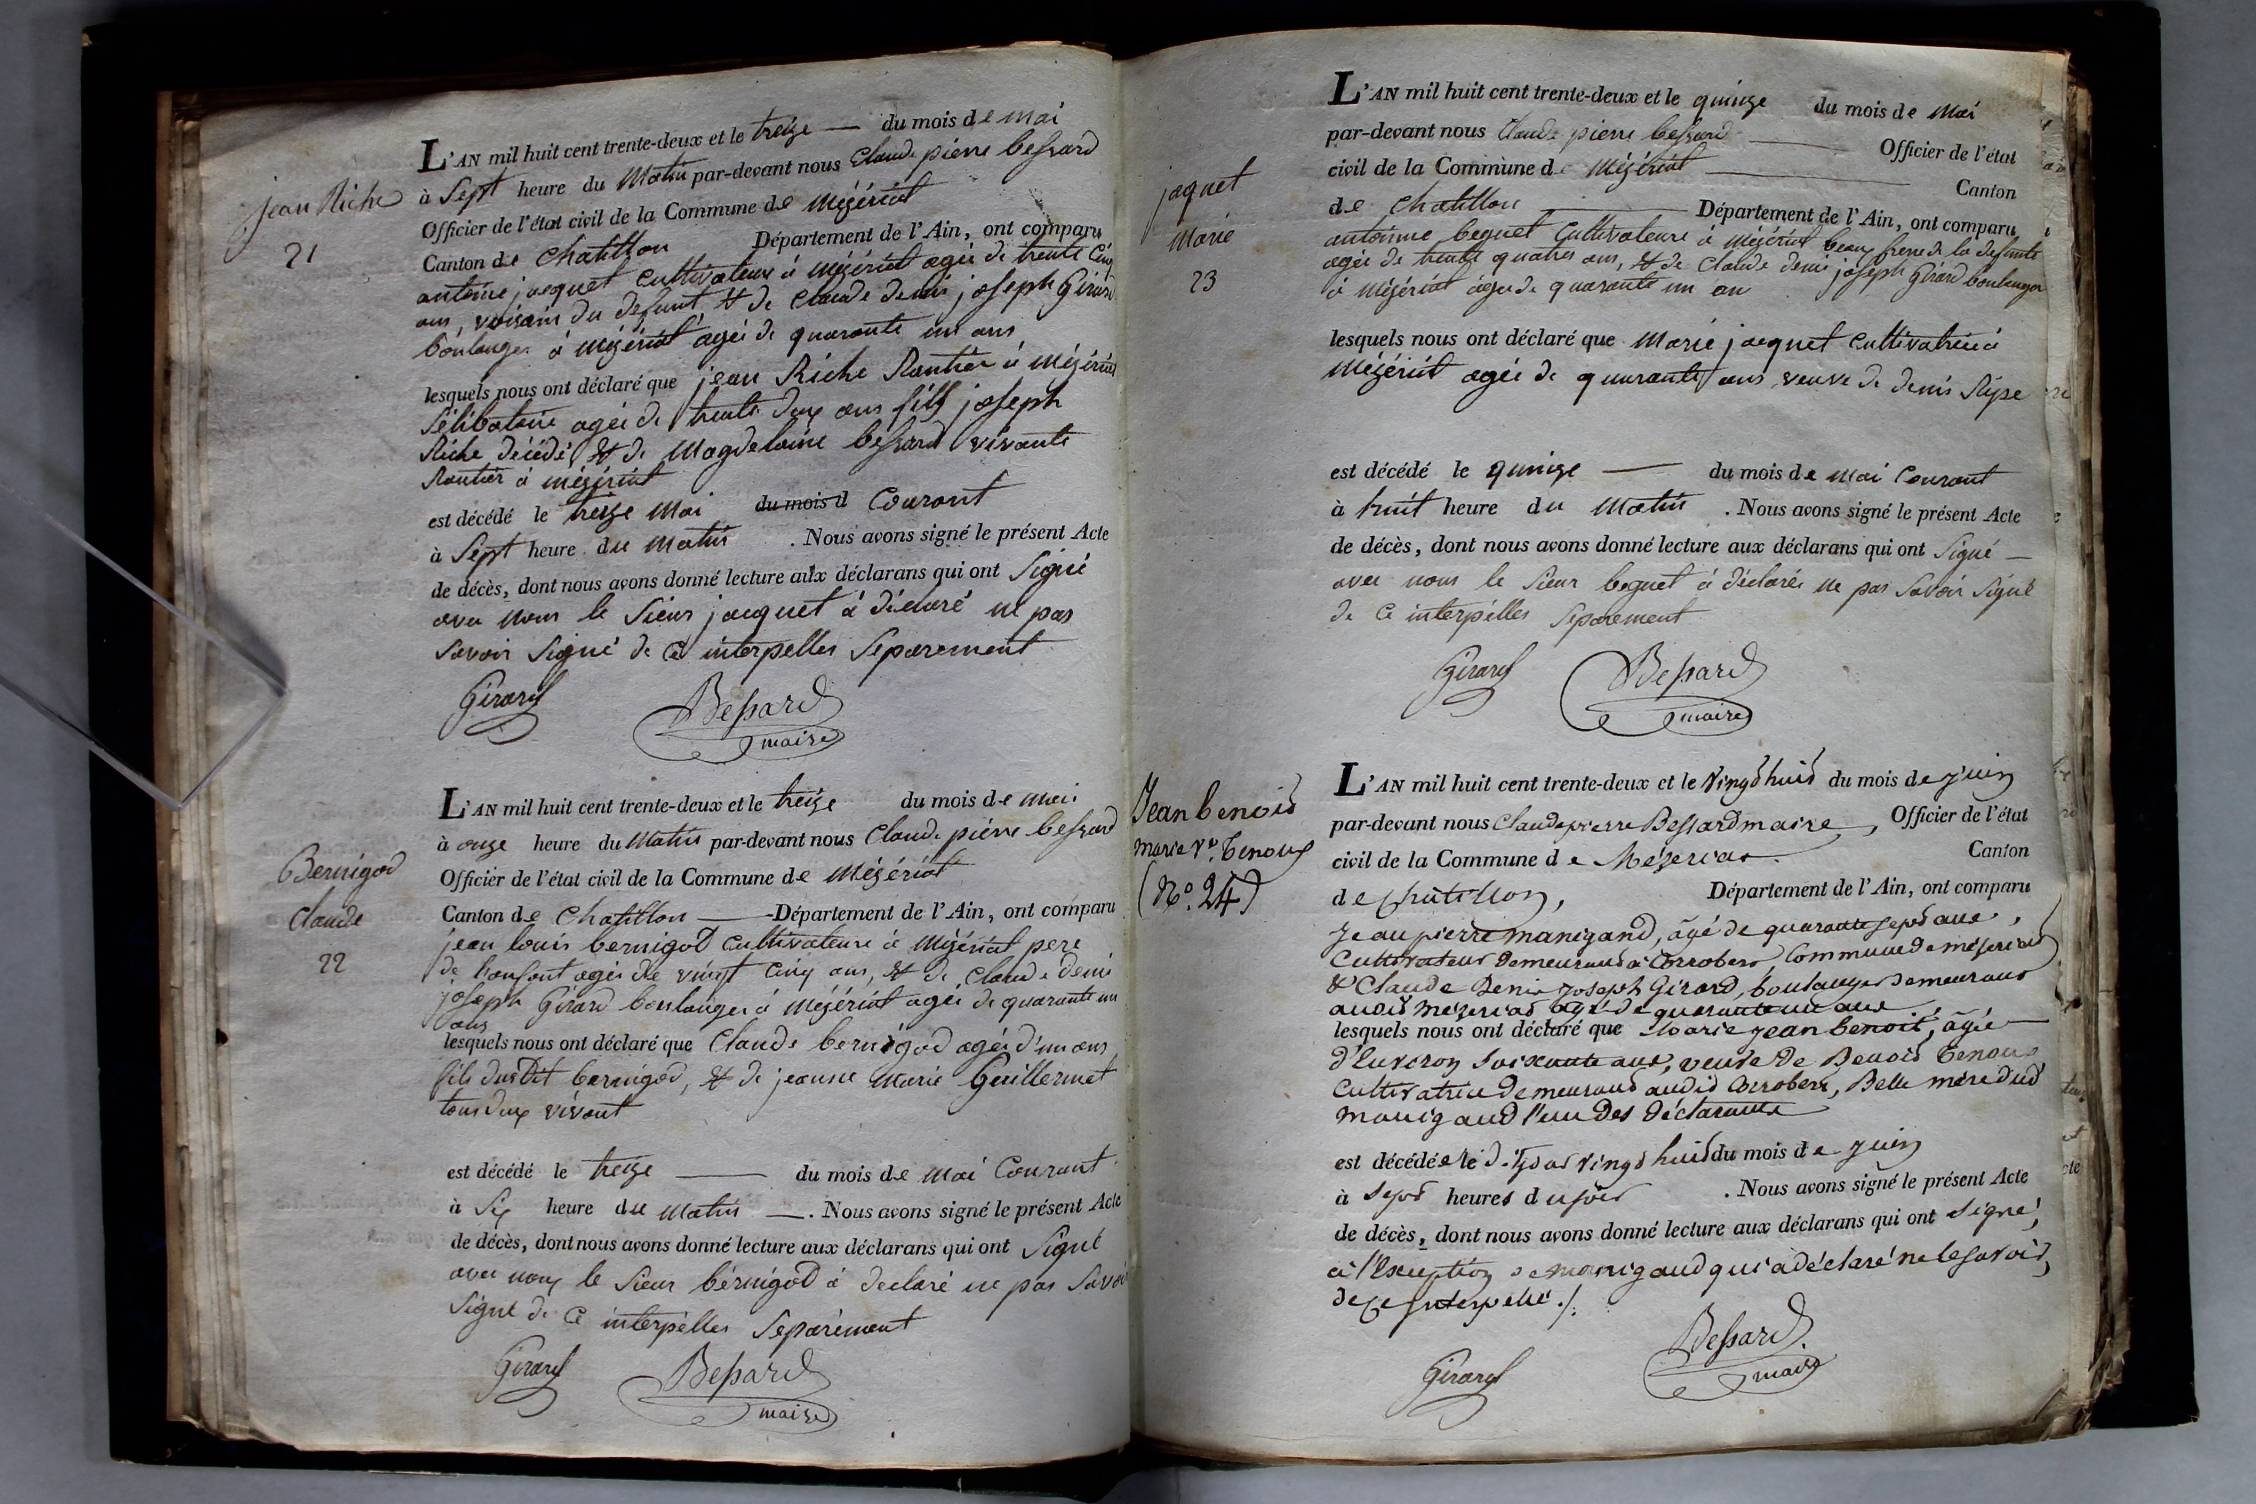 jean Riche
21
L'AN mil huit cent trente-deux et le treize — du mois de mai
à Sept heure du Matin par-devant nous Claude pierre bessard
Officier de l'état civil de la Commune de Mézériat
Canton de Chatillon Département de l'Ain, ont comparu
antoine jacquet Cultivateur à Mézériat agée de trente Cinq
ans, voisin du défunt & de claude denis joseph Girard
boulanger à Mézériat agée de quarante un ans
lesquels nous ont déclaré que jean Riche Rantier à Mézériat
Sélibataire agée de trente deux ans fils joseph
Riche décédé, & de Magdelaine bessard vivante
Rantier à Mézériat
est décédé le treize Mai du mois d Courant
à Sept heure du matin . Nous avons signé le présent Acte
de décès, dont nous avons donné lecture aux déclarans qui ont Signé
avec nous le Sieur jacquet à déclaré ne pas
Savoir Signé de ce interpelles Séparement
Girard Bessard
maire
Bernigod
Claude
22
L'AN mil huit cent trente-deux et le treize du mois de mai
à onze heure du Matin par-devant nous Claude pierre bessard
Officier de l'état civil de la Commune de Mézériat
Canton de Chatillon — Département de l'Ain, ont comparu
jean louis bernigod Cultivateur à Mézériat pere
de l'enfant agée de vingt Cinq ans, & de Claude denis
joseph Girard boulanger à Mézériat agée de quarante un
ans
lesquels nous ont déclaré que Claude bernigod agée d'un ans
fils dudit bernigod, & de jeanne Marie Guillermet
tous deux vivant
est décédé le treize — du mois de mai Courant
à Six heure du matin — . Nous avons signé le présent Acte
de décès, dont nous avons donné lecture aux déclarans qui ont Signé
avec nous le Sieur bérnigod à declaré ne pas Savoir
Signé de ce interpélles Separément
Girard Bessard
maire
jaquet
Marie
23
L'AN mil huit cent trente-deux et le quinze du mois de Mai
par-devant nous Claude pierre bessard — Officier de l'état
civil de la Commune de Mézériat — Canton
de Chatillon — Département de l'Ain, ont comparu
antoinne beguet Cultivateure à Mézériat beaux frere de la defunte
agée de trente quatres ans, & de Claude denis joseph Girard boulanger
à Mézériat âgée de quarante un an
lesquels nous ont déclaré que Marie jacquet Cultivatrice à
Mézériat agée de quarante ans, veuve de denis Ripe
est décédé le quinze — du mois de mai Courant
à huit heure du Matin . Nous avons signé le présent Acte
de décès, dont nous avons donné lecture aux déclarans qui ont Signé —
avec nous le Sieur beguet à déclaré ne pas Savoir Signé
de ce interpélles Séparement
Girard Bessard
maire
Jean benoit
marie Ve. Tenoux
(No. 24)
L'AN mil huit cent trente-deux et le vingt huit du mois de juin
par-devant nous Claude pierre Bessard maire, Officier de l'état
civil de la Commune de Mézeriat. Canton
de chatillon, Département de l'Ain, ont comparu
Jean pierre manigand, âgé de quarante sept ans,
Cultivateur demeurant à Corrobert Commune de mézeriat
& Claude Denis Joseph Girard, boulanger demeurant
audit Mézeriat agé de quarante un ans
lesquels nous ont déclaré que Marie Jean benoit, âgée
d'Environ Soixante ans, veuve de Benoit Tenoux
Cultivatrice demeurant audit Corrobert, Belle mère dud
manigand l'un des déclarants
est décédée le vingt huit du mois de juin
à Sept heures du soir . Nous avons signé le présent Acte
de décès, dont nous avons donné lecture aux déclarans qui ont Signé,
à l'Exception de manigand qui a déclaré ne le savoir,
de ce Interpellé ./.
Girard Bessard
maire